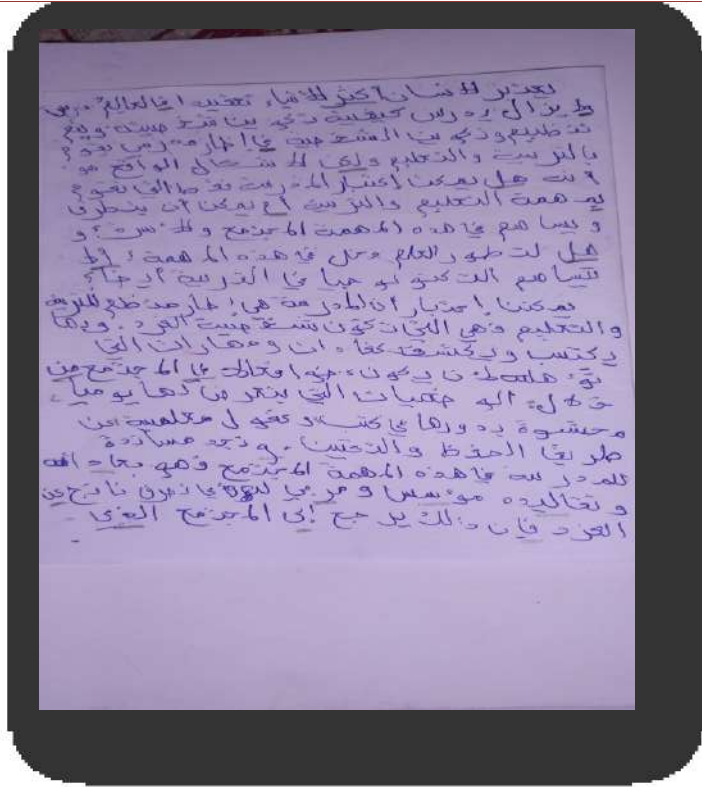 يعتبر الإنسان أكثر الأشياء تعقيدا في العالم
ولا يزال يدرس كيفية تكوين شخصيته
تنظيم وتكوين الشخصية في إطار مدرسي يقوم
بالتربية والتعليم ولكن الإشكال الواقع هو
أنه هل يمكن اعتبار المدرسة فقط التي تقوم
بمهمة التعليم والتربية أم يمكن أن يتطرق
ويساهم في هذه المهمة المجتمع والأسرة؟ و
هل لتطور العلم دخل في هذه المهمة؟
تساهم التكنولوجيا في التربية أيضا؟
يمكننا إعتبار أن المدرسة هي إطار منظم للتربية
والتعليم فهي التي تكون شخصية الفرد. وبها
يكتسب ويكتشف كفاءات ومهارات التي
تؤهله لأن يكون في المجتمع من
خلال الوضعيات التي يتعرض لها يوميا،
محشوة بدورها في كتب وعقول
طريق الحفظ والتلقين. ونجد مساندة
للمدرسة في هذه المهمة المجتمع فهو بعاداته
وتقاليده مؤسس ومربي ناتج عن
الفرد فإن ذلك يرجع إلى المجتمع الذي